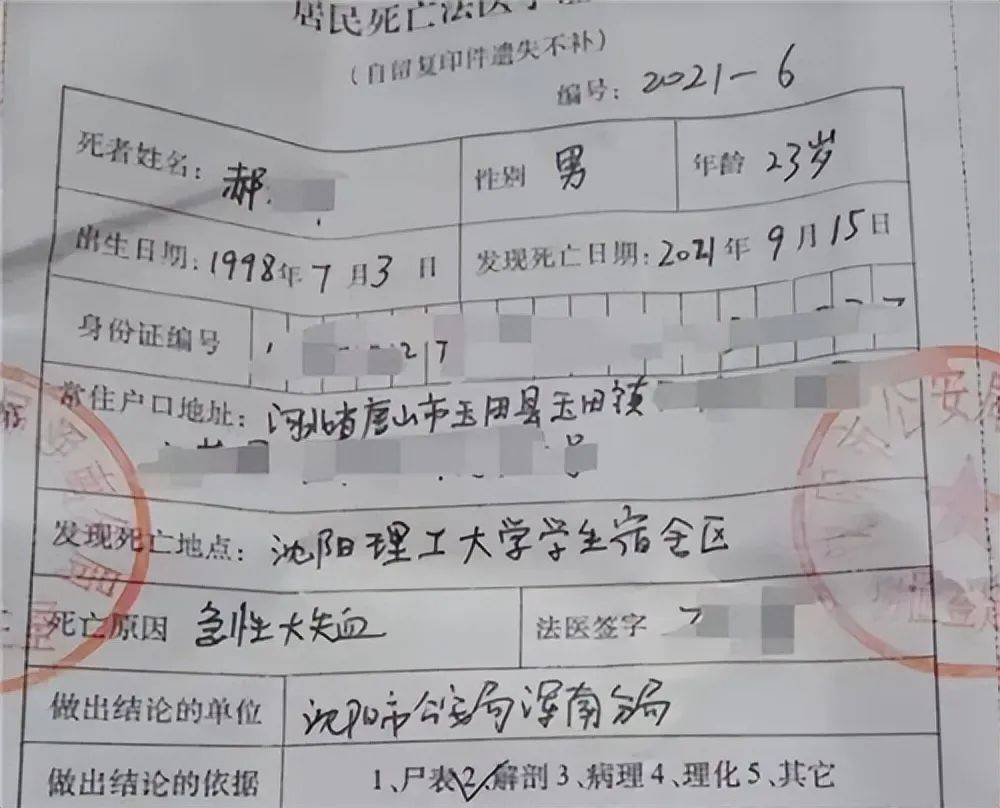 居民死亡法医学
(自留复印件遗失不补)
编号: 2021-6
死者姓名: 郝 性别 男 年龄 23岁
出生日期: 1998年7月3日 发现死亡日期: 2021年9月15日
身份证编号 217
常住户口地址: 河北省唐山市玉田县玉田镇
号
发现死亡地点: 沈阳理工大学学生宿舍区
死亡原因 急性大失血 法医签字
做出结论的单位 沈阳市公安局浑南分局
做出结论的依据 1、尸表 2、解剖 3、病理 4、理化 5、其它